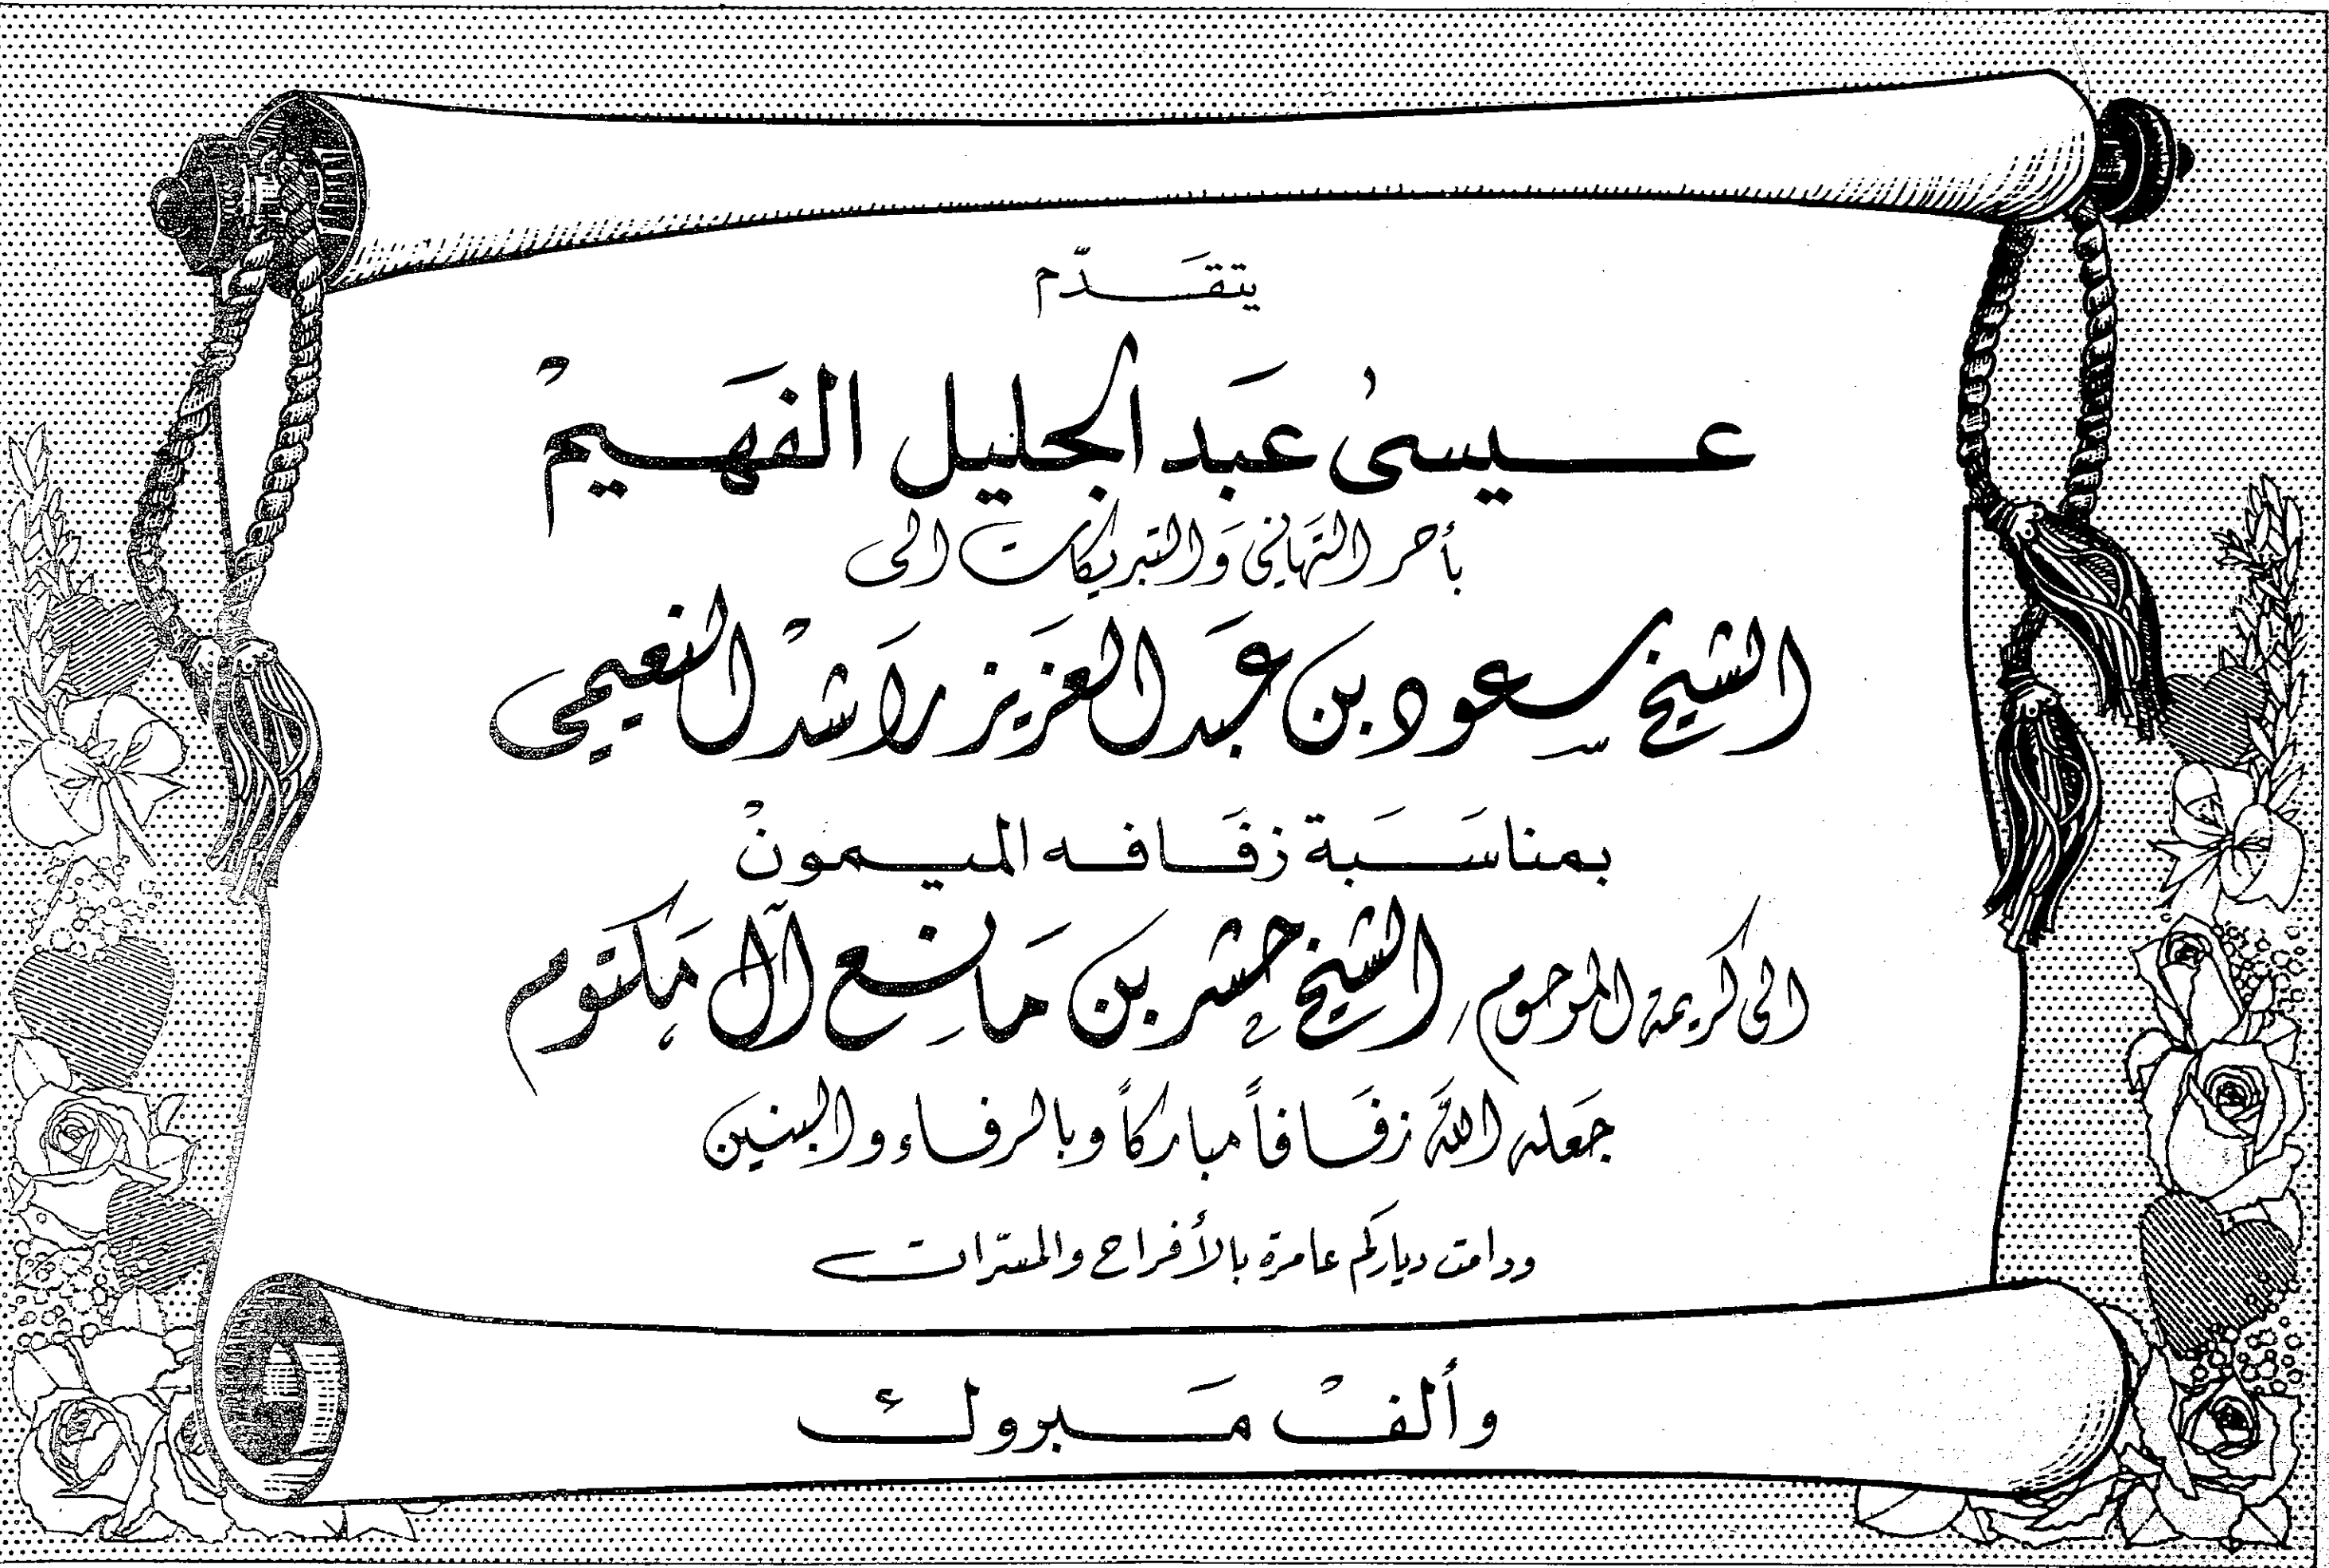 يتقَدّم
عيسىٰ عَبَد الجليل الفهَيمْ
بأحر التهَاني وَالتبريكات الى
الشيخ سعود بن عَبَد العزَيز رَاشدْ النعيمي
بمناسَبَة زفَافه الميمونْ
الى كريمة المرحوم / الشيخ حشر بن مَانع آل مَكتوم
جعَله اللّه زفَافاً مباركاً وبالرفاء والبنين
ودامت دياركم عامرة بالأفراح والمسّرات
وألفْ مَبروك